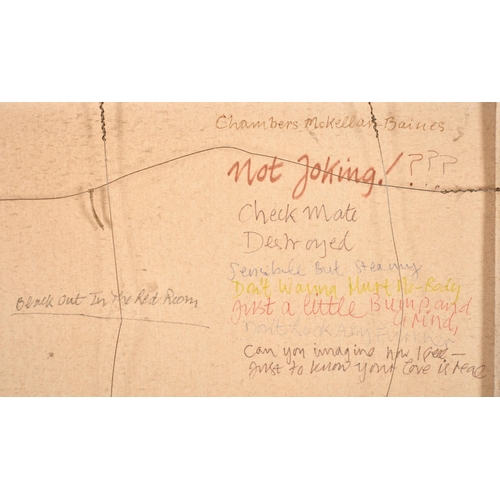 Chambers McKellar-Baines
Not Joking! ???
Check Mate
Destroyed
Sensible But Steamy
Don't
Just a little Bump and
Grind,
Black Out In The Red Room
Don't Look
Can you imagine how I feel —
Just to know your love is real